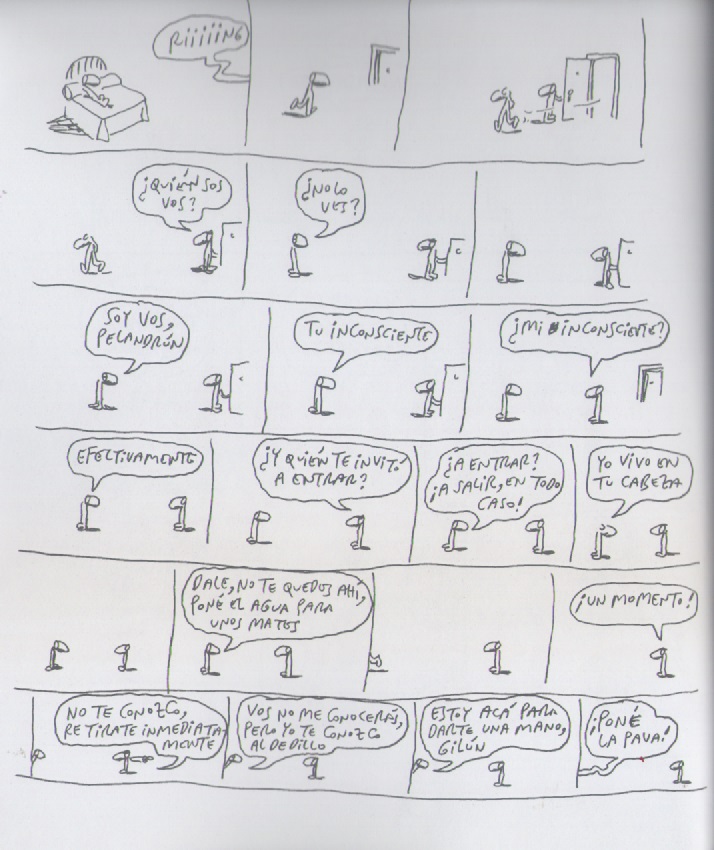 RiiiiiNG
¿QUIÉN SOS
VOS?
¿NO LO
VES?
SOY VOS,
PELANDRÚN
TU iNCONSCiENTE
¿Mi iNCONSCiENTE?
EFECTiVAMENTE
¿Y QUiÉN TE iNViTÓ
A ENTRAR?
¿A ENTRAR?
¡A SALiR, EN TODO
CASO!
YO ViVO EN
TU CABEZA
DALE, NO TE QUEDES AHÍ,
PONÉ EL AGUA PARA
UNOS MATES
¡UN MOMENTO!
NO TE CONOZCO,
RETiRATE iNMEDiATA-
MENTE
VOS NO ME CONOCERÁS,
PERO YO TE CONOZCO
AL DEDiLLO
ESTOY ACÁ PARA
DARTE UNA MANO,
GiLÚN
¡PONÉ
LA PAVA!